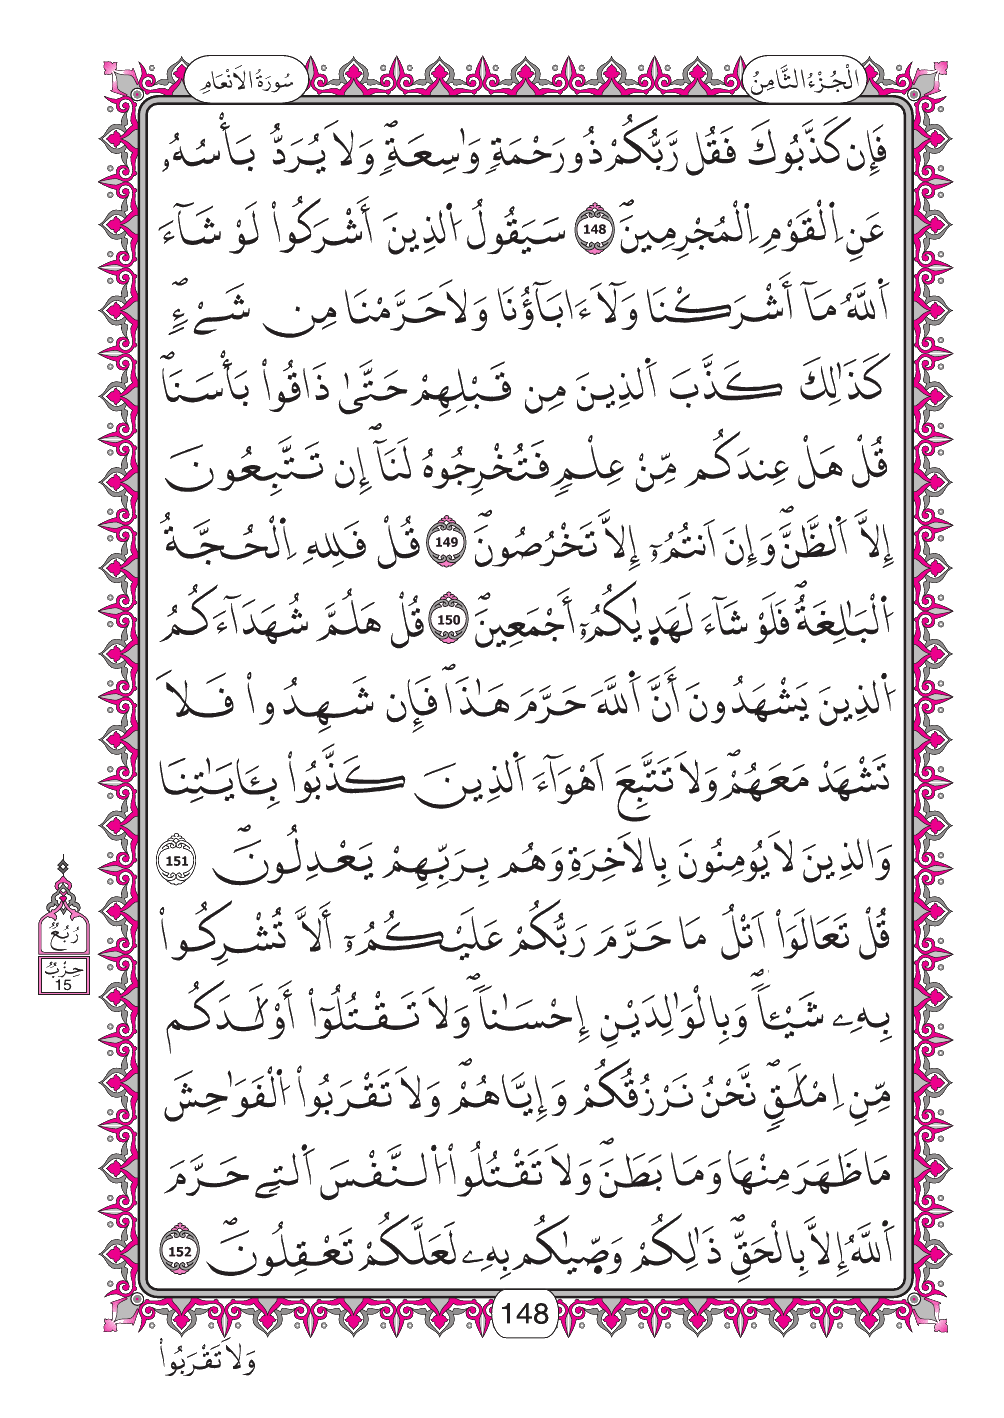 اَلْجُزْءُ الثَّامِنُ
سُورَةُ الاَنْعَامِ
فَإِن كَذَّبُوكَ فَقُل رَّبُّكُمْ ذُو رَحْمَةٖ وَٰسِعَةٖۖ وَلَا يُرَدُّ بَأْسُهُۥ
عَنِ اِ۬لْقَوْمِ اِ۬لْمُجْرِمِينَۖ 148 سَيَقُولُ اُ۬لذِينَ أَشْرَكُواْ لَوْ شَآءَ
اَ۬للَّهُ مَآ أَشْرَكْنَا وَلَآ ءَابَآؤُنَا وَلَا حَرَّمْنَا مِن شَےْءٖۖ
كَذَٰلِكَ كَذَّبَ اَ۬لذِينَ مِن قَبْلِهِمْ حَتَّىٰ ذَاقُواْ بَأْسَنَاۖ
قُلْ هَلْ عِندَكُم مِّنْ عِلْمٖ فَتُخْرِجُوهُ لَنَآۖ إِن تَتَّبِعُونَ
إِلَّا اَ۬لظَّنَّۖ وَإِنَ اَنتُمُۥٓ إِلَّا تَخْرُصُونَۖ 149 قُلْ فَلِلهِ اِ۬لْحُجَّةُ
اُ۬لْبَٰلِغَةُۖ فَلَوْ شَآءَ لَهَد۪يٰكُمُۥٓ أَجْمَعِينَۖ 150 قُلْ هَلُمَّ شُهَدَآءَكُمُ
اُ۬لذِينَ يَشْهَدُونَ أَنَّ اَ۬للَّهَ حَرَّمَ هَٰذَاۖ فَإِن شَهِدُواْ فَلَا
تَشْهَدْ مَعَهُمْۖ وَلَا تَتَّبِعَ اَهْوَآءَ اَ۬لذِينَ كَذَّبُواْ بِـَٔايَٰتِنَا
وَالذِينَ لَا يُومِنُونَ بِالَاخِرَةِ وَهُم بِرَبِّهِمْ يَعْدِلُونَۖ 151
قُلْ تَعَالَوَاْ اَتْلُ مَا حَرَّمَ رَبُّكُمْ عَلَيْكُمُۥٓ أَلَّا تُشْرِكُواْ
بِهِۦ شَيْـٔاٗۖ وَبِالْوَٰلِدَيْنِ إِحْسَٰناٗۖ وَلَا تَقْتُلُوٓاْ أَوْلَٰدَكُم
مِّنِ اِمْلَٰقٖۖ نَّحْنُ نَرْزُقُكُمْ وَإِيَّاهُمْۖ وَلَا تَقْرَبُواْ اُ۬لْفَوَٰحِشَ
مَا ظَهَرَ مِنْهَا وَمَا بَطَنَۖ وَلَا تَقْتُلُواْ اُ۬لنَّفْسَ اَ۬لتِے حَرَّمَ
اَ۬للَّهُ إِلَّا بِالْحَقِّۖ ذَٰلِكُمْ وَصّ۪يٰكُم بِهِۦ لَعَلَّكُمْ تَعْقِلُونَۖ 152
رُبُعُ
حِزْبُ
15
148
وَلَا تَقْرَبُواْ